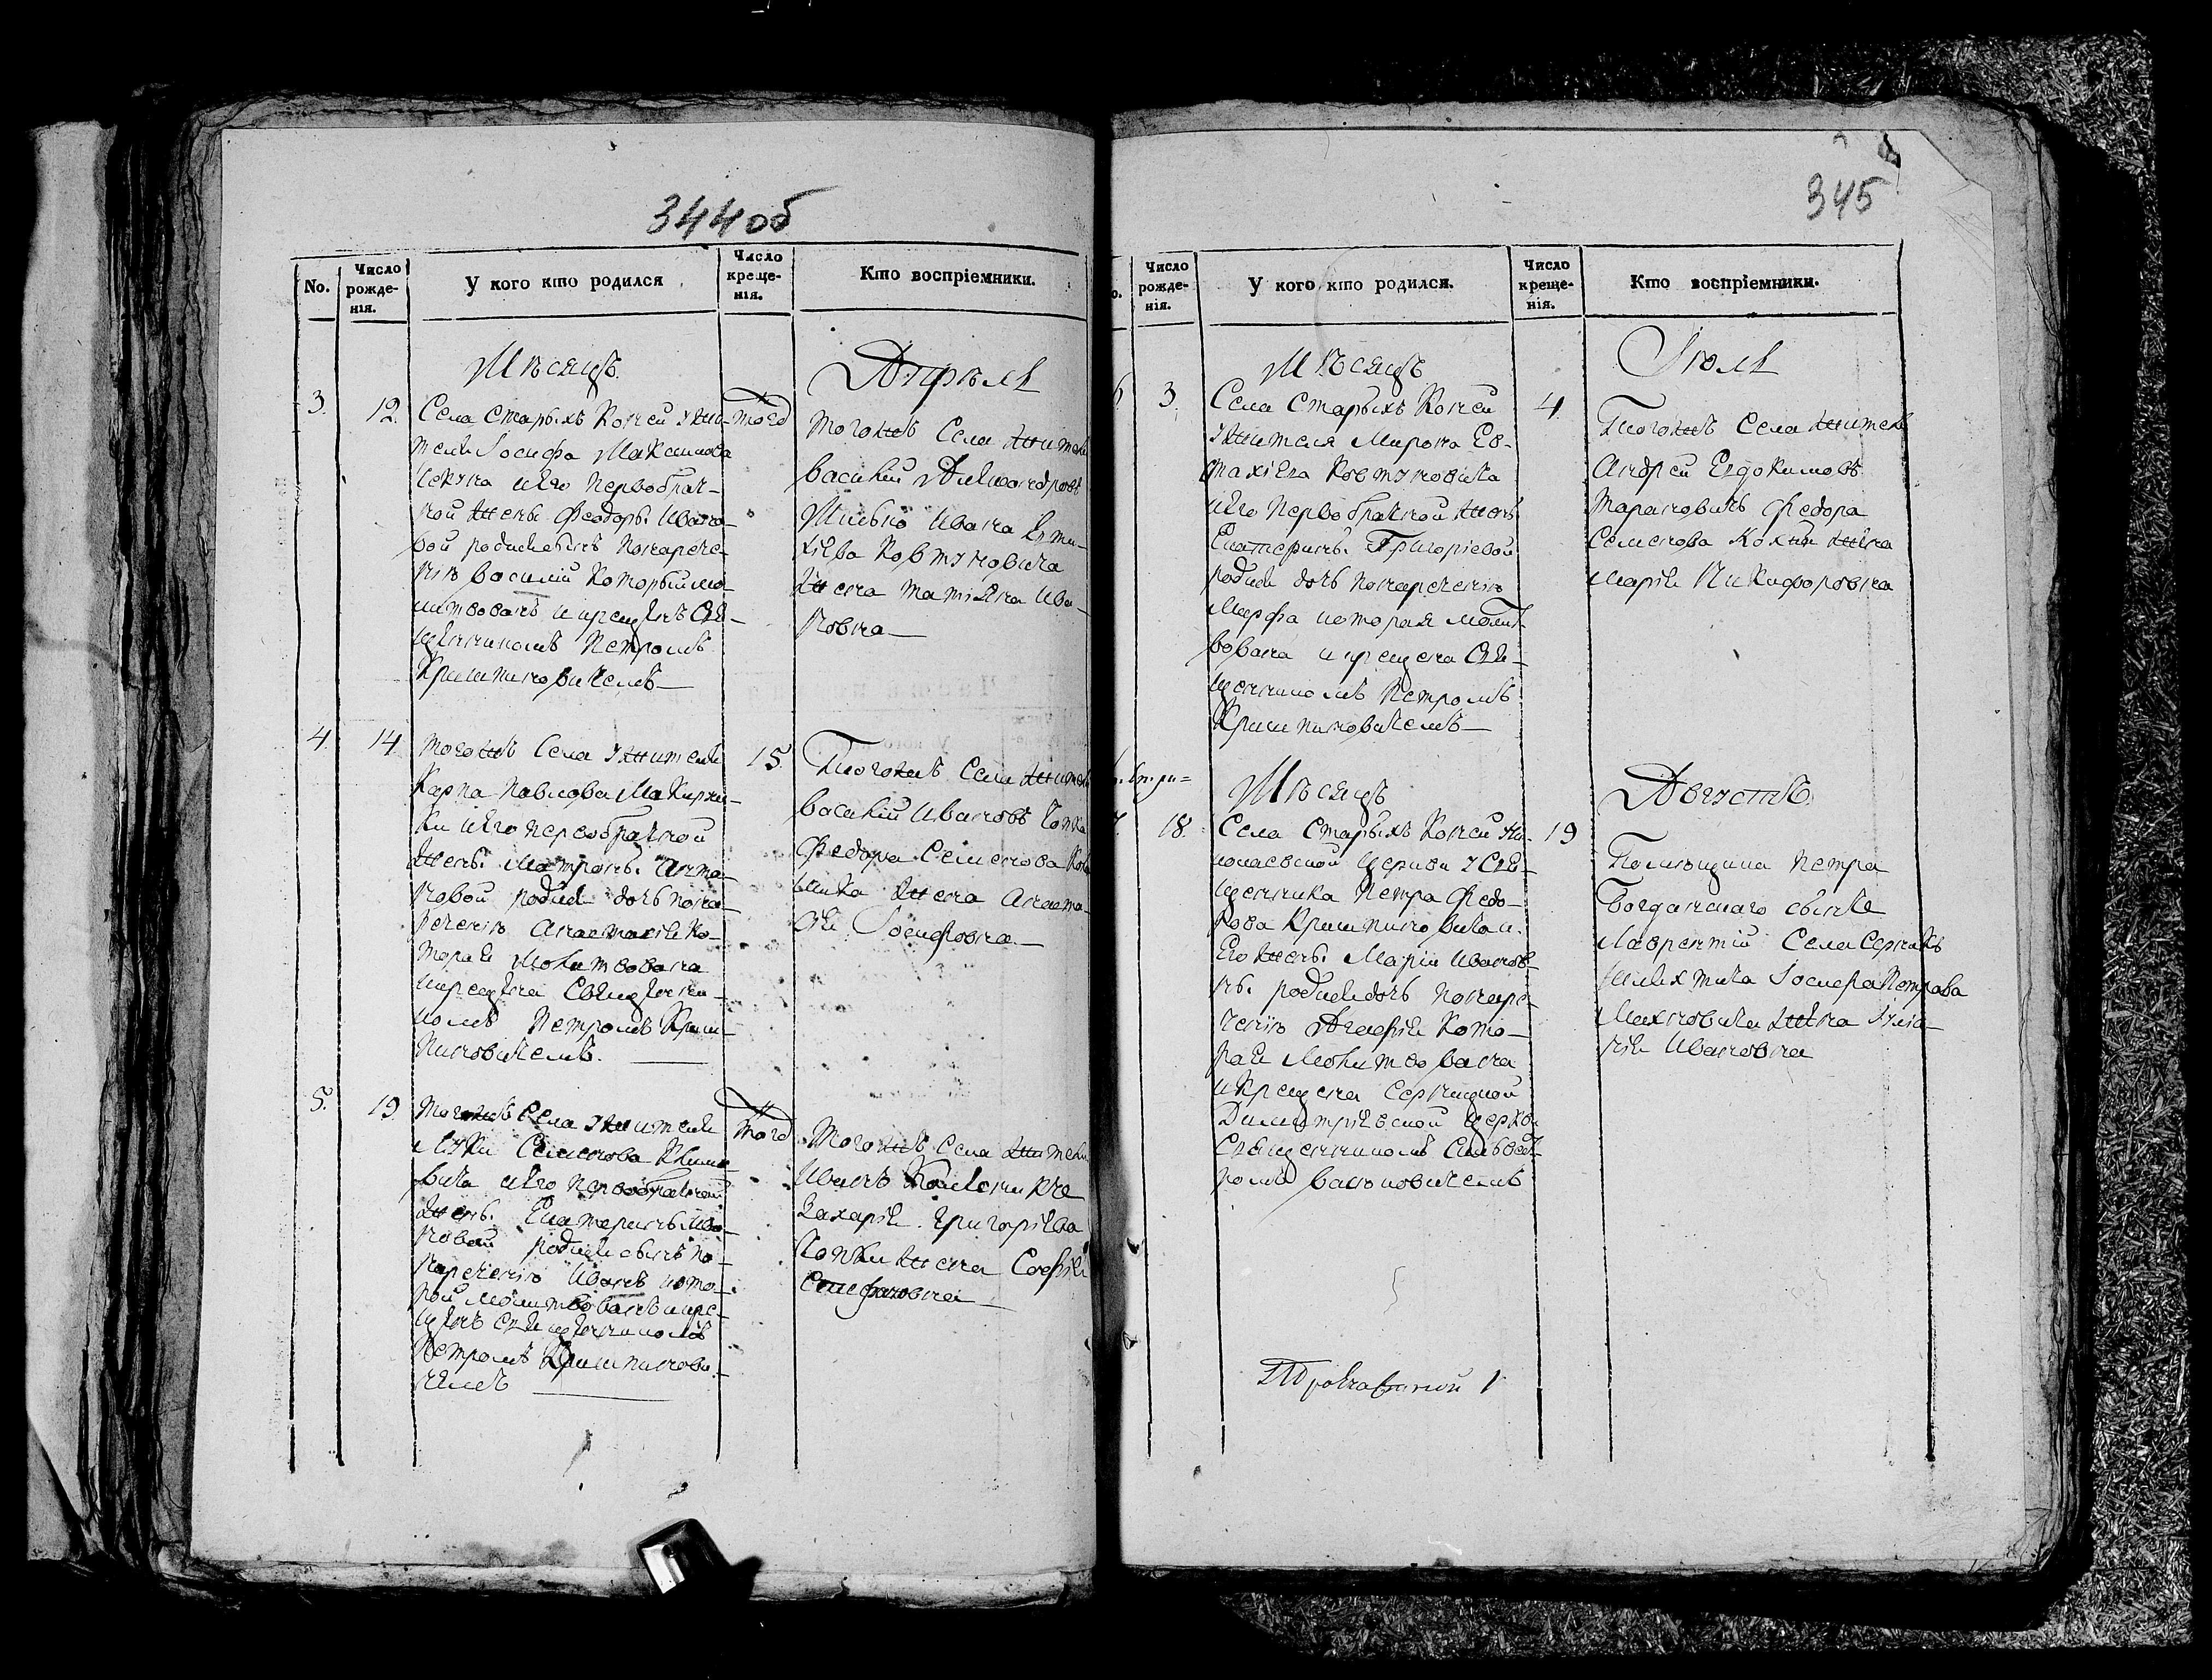 344об
No.
Число рожде-нія.
У кого кто родился
Число креще-нія.
Кто воспріемники.
Мѣсяцъ
Апрѣля
3.
12.
Села Старыхъ Коней ужи-
теля Іосифа Максимова
иего первобрач-
ной жены Феодоры Ивано-
вой родился сынъ понарече-
нію Василій которыймо-
литвованъ и крещенъ Свя-
щенникомъ Петромъ
Кришпиновичемъ
того
Тогожъ Села житель
Василій Александровъ
Ивана Евти-
хіева Ковтуновича
жена Татіяна Ива-
новна
4.
14
Тогожъ Села ужителя
Карпа Павлова
ки иего первобрачной
жены Матроны Анто-
новой родися дочь пона-
реченію Анастасія ко-
торая Молитвована
икрещена Священни-
комъ Петромъ Криш-
пиновичемъ.
15.
Тогожъ Села житель
Василій Ивановъ
Федора Семенова
жена Анаста-
сія Іосифовна
5.
19
Тогожъ Села ужителя
Луки Семенова
вича иего первобрачной
жены Екатерины Ива-
новой родися сынъ по-
нареченію Иванъ кото-
рой молитвованъ икре-
щенъ Священникомъ
Петромъ Кришпинови-
чемъ
того
Тогожъ Села житель
Иванъ
Захарія Григоріева
жена Софія
345
Число рожде-нія.
У кого кто родился.
Число креще-нія.
Кто воспріемники.
Мѣсяцъ
Іюля
3.
Села Старыхъ Коней
ужителя Мирона Ев-
тихіева Ковтуновича
иего Первобрачной жены
Екатерины Григоріевой
родися дочь понареченію
Марфа которая молит-
вована и крещена Свя-
щенникомъ Петромъ
Кришпиновичемъ
4.
Тогожъ Села житель
Андрей Евдокимовъ
Тарановичъ Федора
Семенова жена
Марія Никифоровна
Мѣсяцъ
Августъ
18.
Села Старыхъ Коней Ни-
колаевской Церкви у Свя-
щенника Петра Федо-
рова Кришпиновича и
Его жены Маріи Иванов-
ны родися дочь понаре-
ченію Агафія Кото-
рая Молитвована
икрещена Серницкой
Димитріевской Церкви
Священникомъ
19
Помощика Петра
Богданскаго
Лаврентій Села Серникъ
Іосифа Петрова
Махновича жена Іулiа-
нія Ивановна